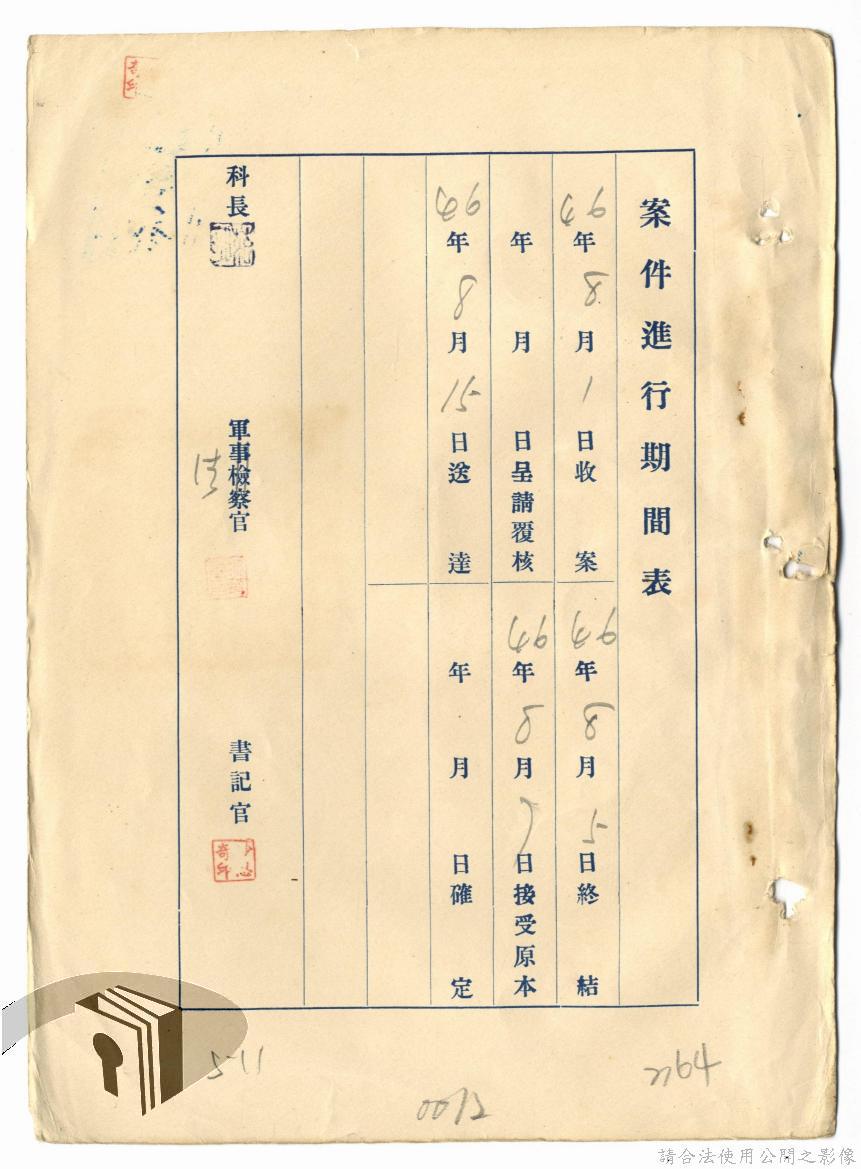 案件進行期間表
年8月1日收案
年8月5日終結
年月日呈請覆核
年8月日接受原本
年8月15日送達
年月日確定
科長
軍事檢察官
書記官
請合法使用公開之影像